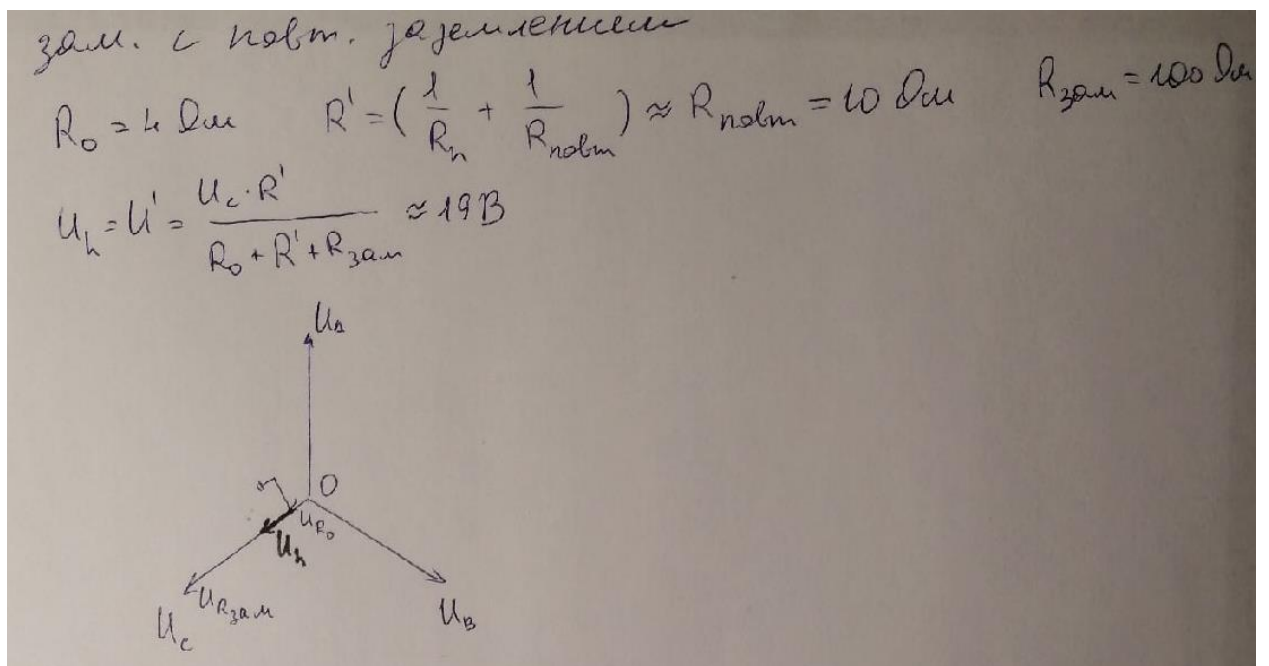 зам. с повт. заземлением
R₀ = 4 Ом R' = (1/Rₕ + 1/Rповт) ≈ Rповт = 10 Ом Rзам = 100 Ом
Uₕ = U' = U_c · R' / (R₀ + R' + Rзам) ≈ 19 В
U_A
O
U_R₀
Uₕ
U_Rзам
U_C
U_B